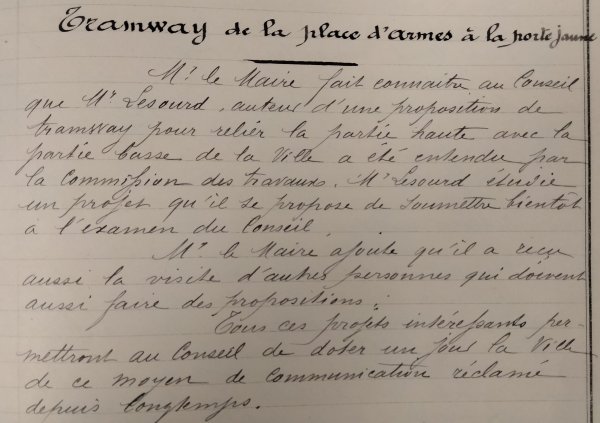 Tramway de la place d'armes à la porte jaune
Mr. le Maire fait connaitre au Conseil
que Mr. Lesourd, auteur d'une proposition de
tramway pour relier la partie haute avec la
partie basse de la Ville a été entendu par
la Commission des travaux. Mr. Lesourd étudie
un projet qu'il se propose de soumettre bientôt
à l'examen du Conseil.
Mr. le Maire ajoute qu'il a reçu
aussi la visite d'autres personnes qui doivent
aussi faire des propositions.
Tous ces projets intéressants per-
mettront au Conseil de doter un jour la Ville
de ce moyen de communication réclamé
depuis longtemps.